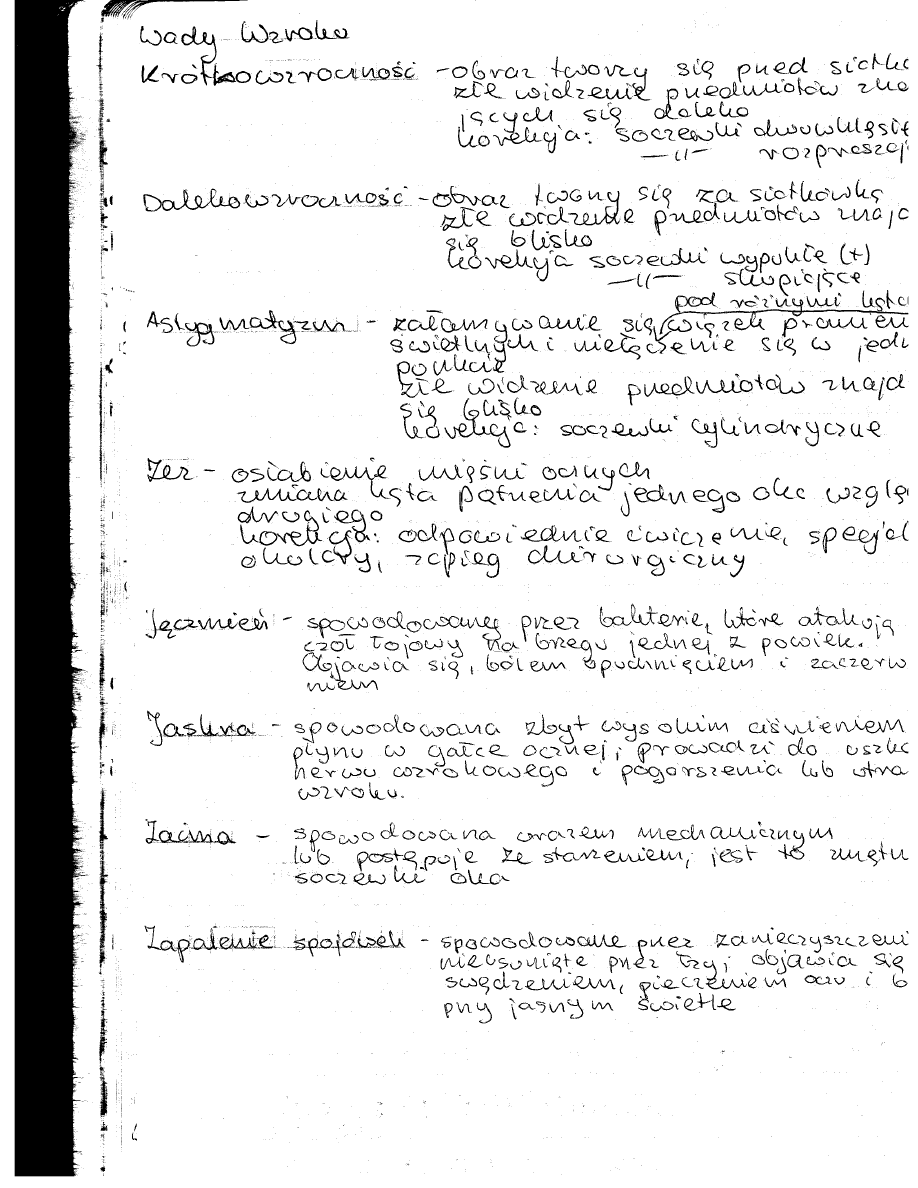 Wady Wzroku
Krótkowzroczność - obraz tworzy się przed siatkó
złe widzenie przedmiotów zna
jących się daleko
korekcja: soczewki dwuwklęsłe
—〃— rozpraszaj
Dalekowzroczność - obraz tworzy się za siatkówką
złe widzenie przedmiotów znajd
się blisko
korekcja soczewki wypukłe (+)
—〃— skupiające
pod różnymi kąta
Astygmatyzm - załamywanie się wiązek promien
świetlnych i niełączenie się w jedn
punkcie
złe widzenie przedmiotów znajd
się blisko
korekcja: soczewki cylindryczne
Zez - osłabienie mięśni ocznych
zmiana kąta patrzenia jednego oka wzglę
drugiego
korekcja: odpowiednie ćwiczenie, specjal
okulary, zabieg chirurgiczny
Jęczmień - spowodowany przez bakterie, które atakują
czoł łojowy na brzegu jednej z powiek.
Objawia się, bólem opuchnięciem i zaczerw
niem
Jaskra - spowodowana zbyt wysokim ciśnieniem
płynu w gałce ocznej, prowadzi do uszko
nerwu wzrokowego i pogorszenia lub utra
wzroku.
Zaćma - spowodowana urazem mechanicznym
lub postępuje ze starzeniem, jest to zmętn
soczewki oka
Zapalenie spojówek - spowodowane przez zanieczyszczeni
nieusunięte przez łzy, objawia się
swędzeniem, pieczeniem oczu i b
przy jasnym świetle